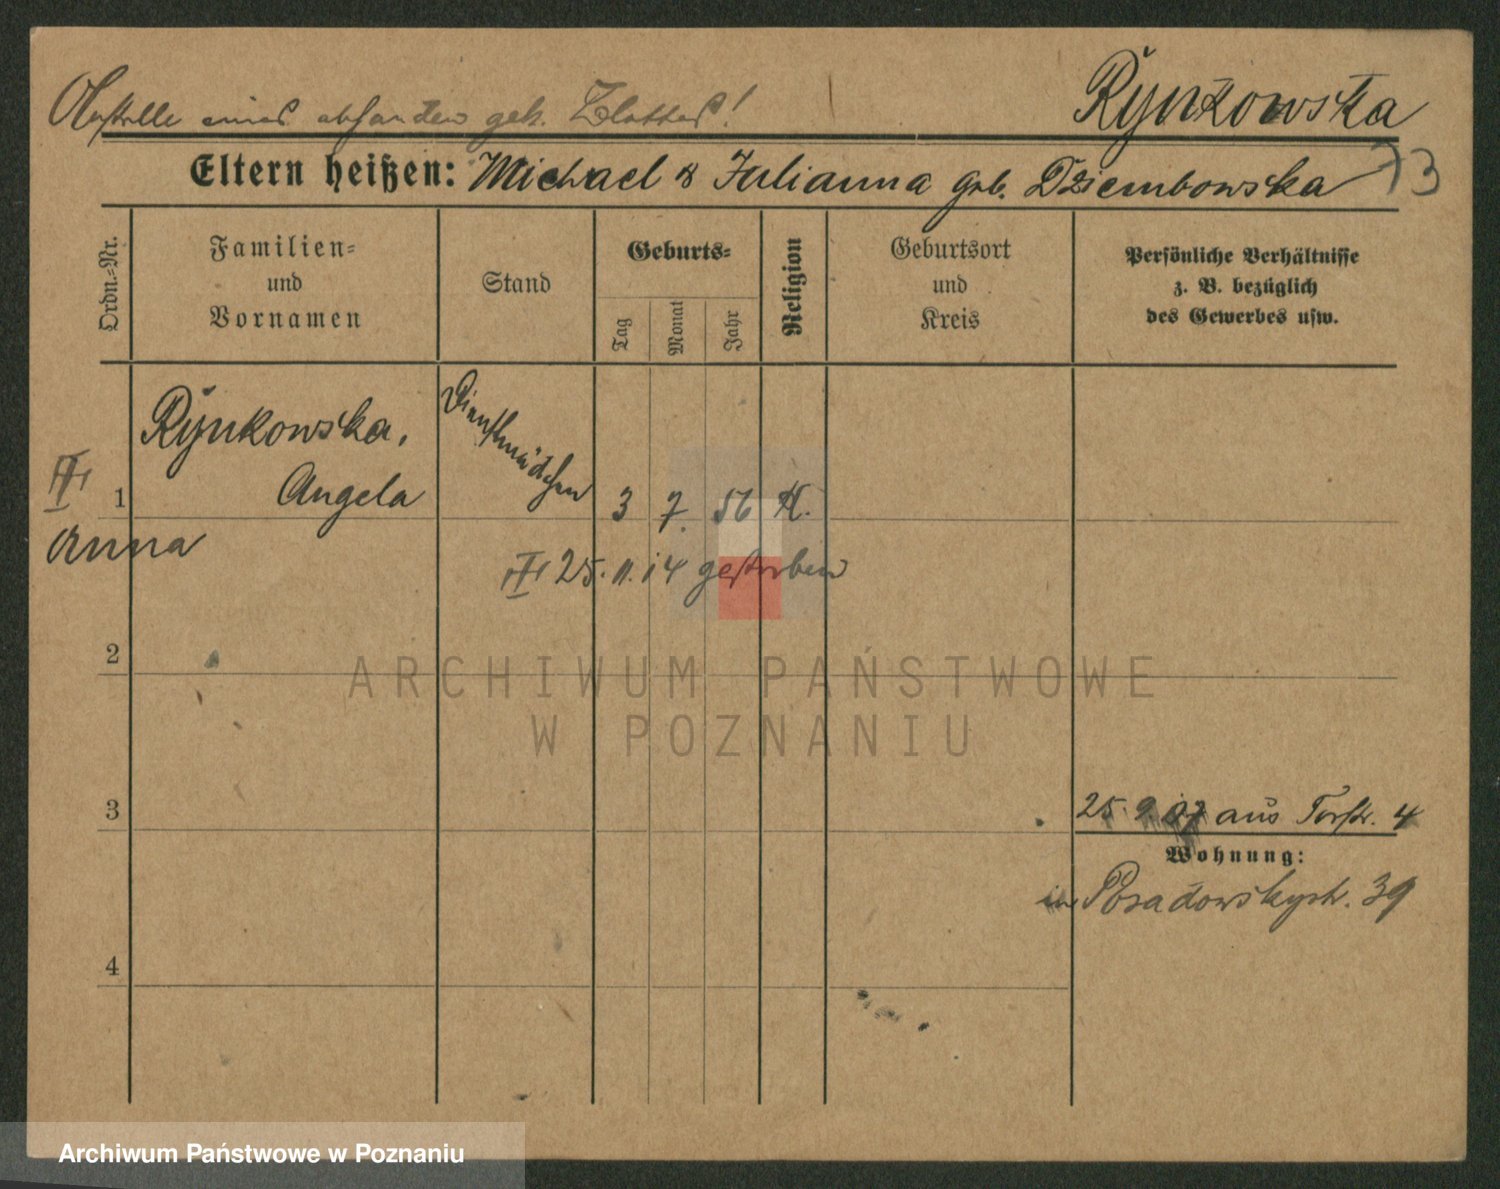 Rynkowska
An Stelle eines abhanden gek. Blattes!
73
Eltern heißen: Michael & Julianna geb. Dziembowska
Ordn.-Nr.
Familien-
und
Vornamen
Stand
Geburts-
Tag
Monat
Jahr
Religion
Geburtsort
und
Kreis
Persönliche Verhältnisse
z. B. bezüglich
des Gewerbes usw.
Rynkowska,
Dienstmädchen
Angela
1
3 7. 56 K.
Anna
25.11.14 gestorben
2
ARCHIWUM PAŃSTWOWE
W POZNANIU
3
25.9.07 aus Torstr. 4
Wohnung:
in Posadowskystr. 39
4
Archiwum Państwowe w Poznaniu